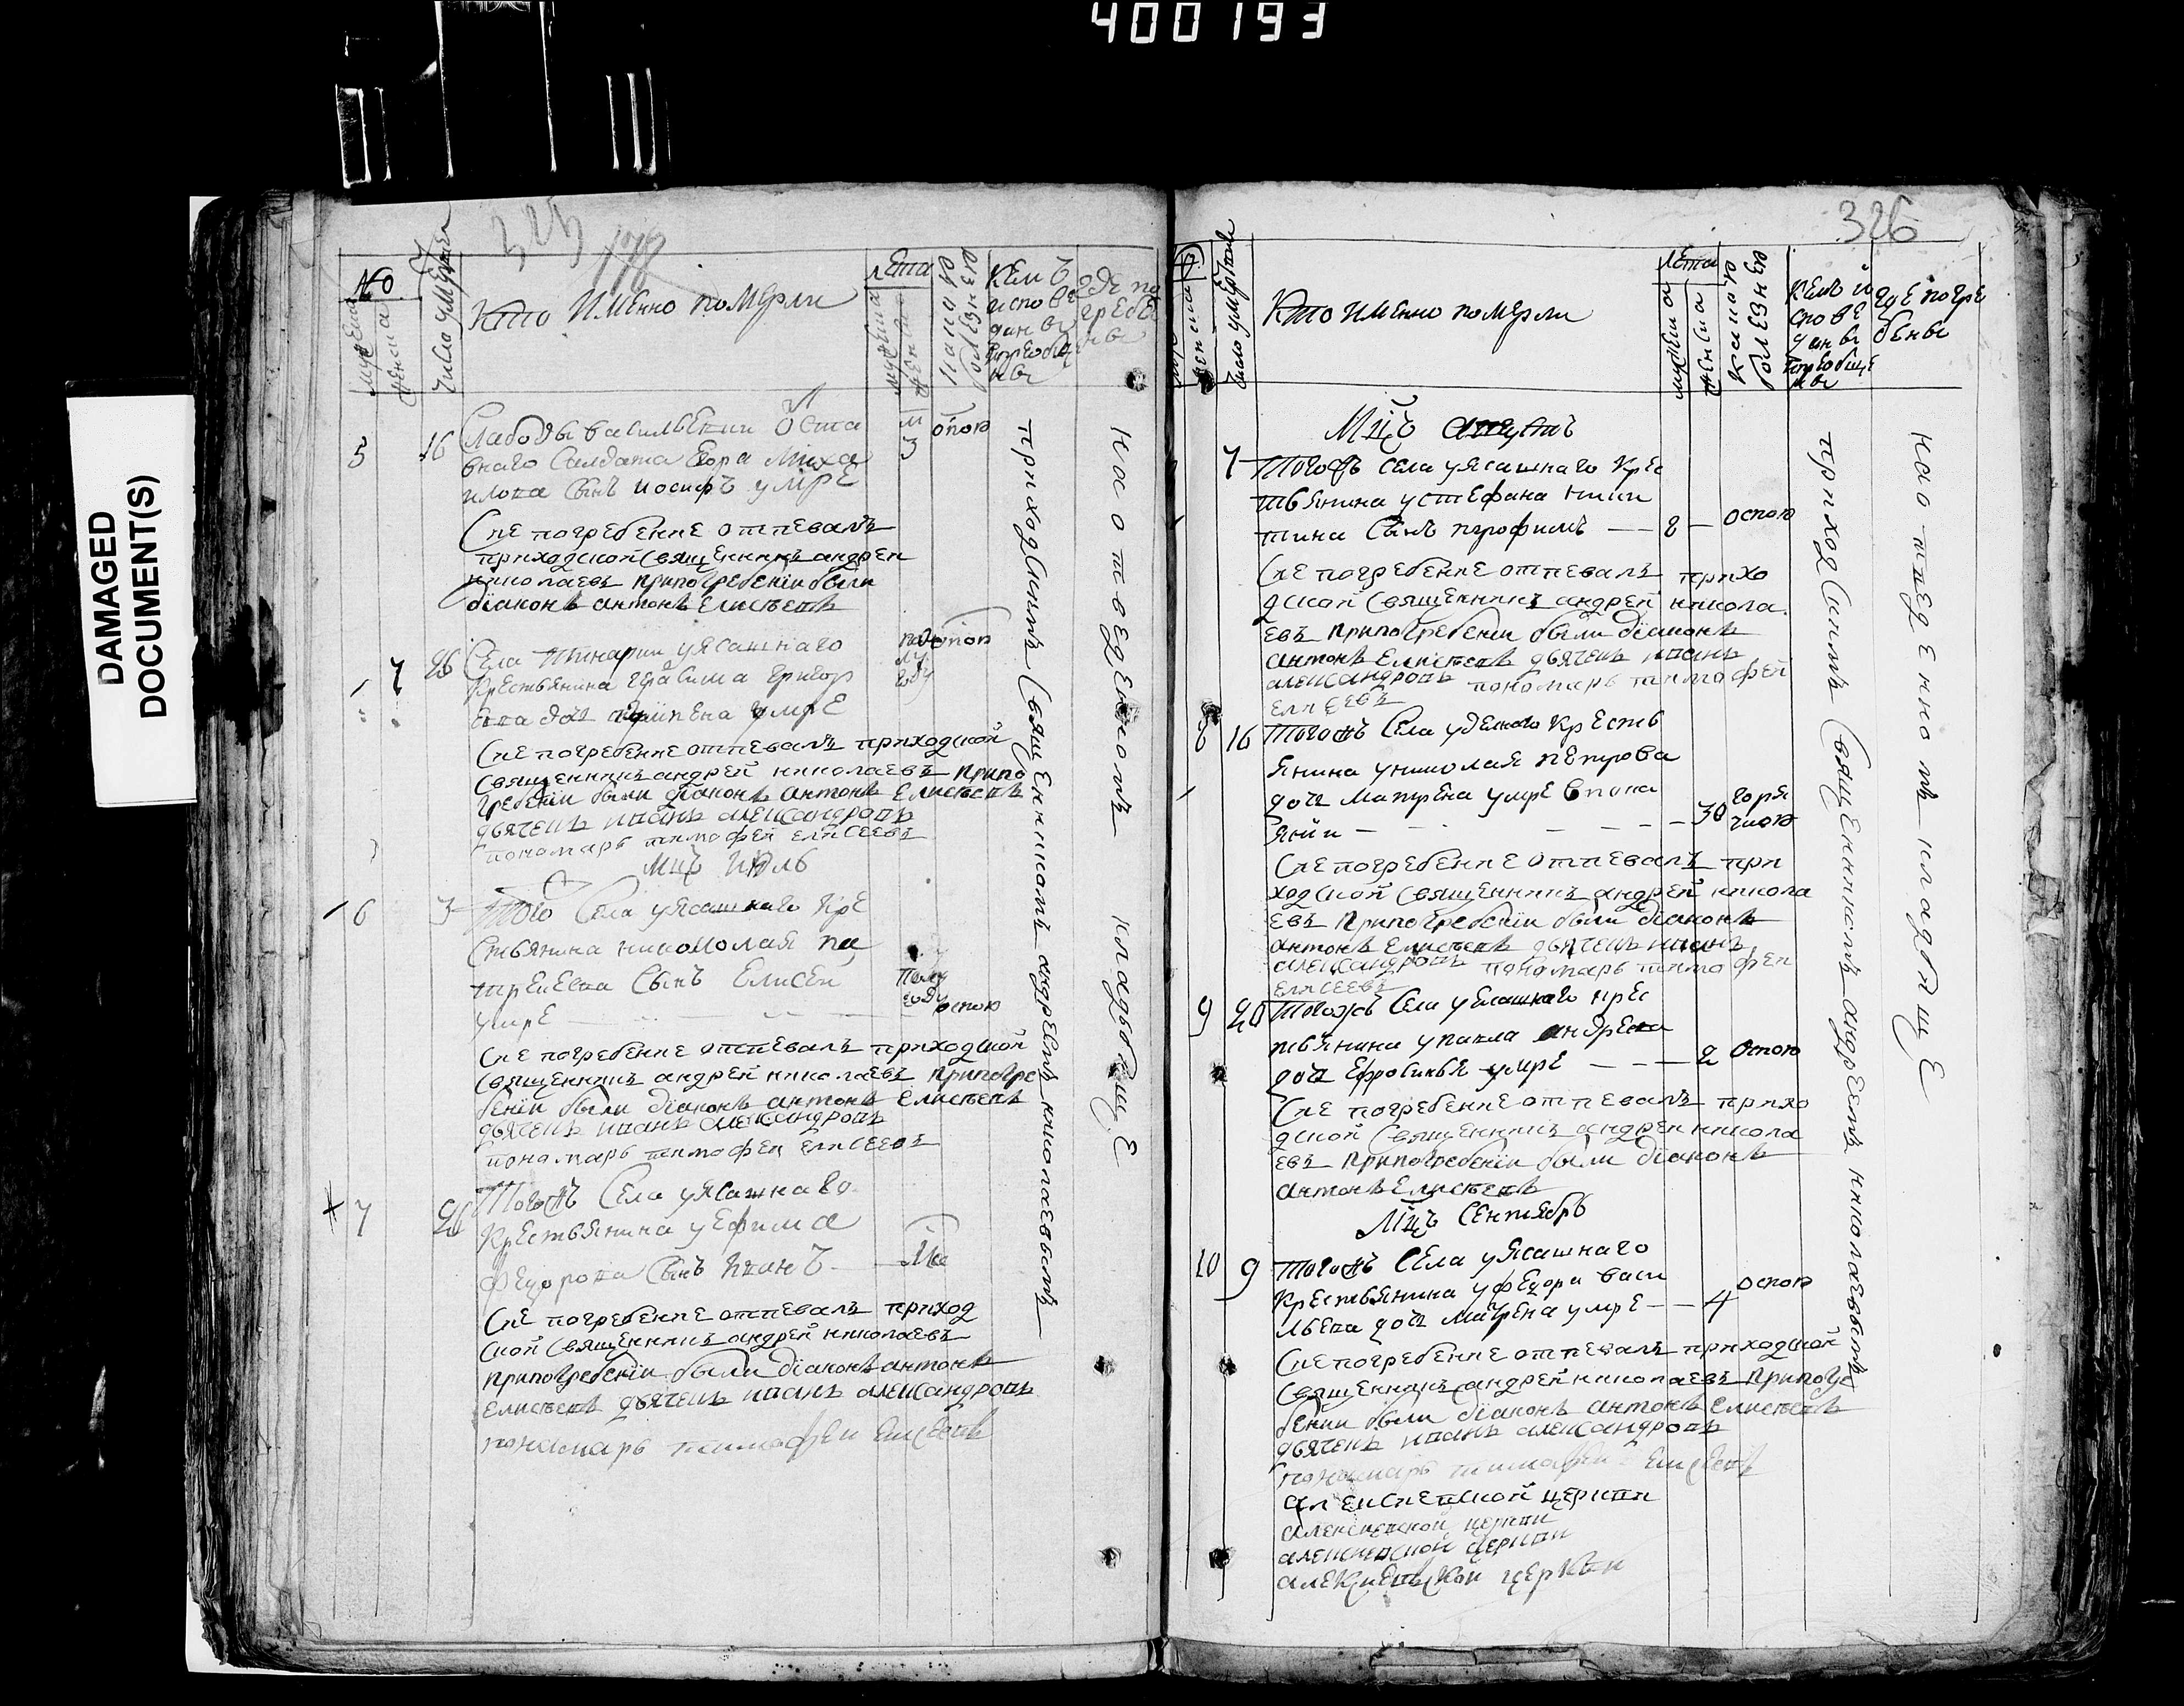 400193
DAMAGED
DOCUMENT(S)
325
178
№
мужеска
женска
число умертвия
Кто именно померли
лета
мужеска
женска
какою
болезнею
кемъ
исповеданы
и приобщены
где погребены
5 16 Слабоды васильский Оста
внаго Салдата Егора Миха
илова Сынъ иосифъ умре
3 оспою
Сие погребение отпевалъ
приходской Священникъ андреи
николаевъ при погребении были
диаконъ антонъ Елисеевъ
7 26 Села тинарии у ясашнаго
крестьянина герасима григор
ева дочь агрипена умре
оспою
Сие погребение отпевалъ приходской
Священникъ андрей николаевъ при по
гребении были диаконъ антонъ Елисеевъ
дьячекъ иванъ александровъ
пономарь тимофей елисеевъ
Мцъ июль
6 3 того Села у ясашнаго кре
стьянина никоколая па
трекеева Сынъ Елисеи
умре
полу
году
оспою
Сие погребение отпевалъ приходской
Священникъ андрей николаевъ при погре
бении были диаконъ антонъ Елисеевъ
дьячекъ иванъ александровъ
пономарь тимофеи елисеевъ
7 26 Тогожъ Села у ясашнаго
крестьянина у ефима
федорова Сынъ иванъ
Сие погребение отпевалъ приход
ской Священникъ андрей николаевъ
при погребении были диаконъ антонъ
Елисеевъ дьячекъ иванъ александровъ
пономарь тимофеи елисеевъ
приходскимъ Священникомъ андреемъ николаевымъ
на отведенномъ кладбище
326
женска
число умертвия
Кто именно померли
лета
мужеска
женска
какою
болезнею
кемъ и
спове
даны
и приобще
ны
где погре
бены
Мцъ августъ
7 Тогожъ села у ясашнаго крес
тьянина у стефана ники
тина Сынъ трофимъ — 8 — оспою
Сие погребение отпевалъ прихо
дской Священникъ андрей никола
евъ при погребении были диаконъ
антонъ Елисеевъ дьячекъ иванъ
александровъ пономарь тимофей
елисеевъ
8 16 Тогожъ Села удельного крест
янина у николая петрова
дочь матрена умре в пока
янии — 30 горя
чкою
Сие погребение отпевалъ при
ходской Священникъ андрей никола
евъ при погребении были диаконъ
антонъ Елисеевъ дьячекъ иванъ
александровъ пономарь тимофеи
елисеевъ
9 20 Тогожъ Села у ясашнаго крес
тьянина у павла андреева
дочь Ефросинья умре — 2 оспою
Сие погребение отпевалъ прихо
дской Священникъ андреи никола
евъ при погребении были диаконъ
антонъ Елисеевъ
Мцъ Сентябрь
10 9 Тогожъ Села у ясашнаго
крестьянина у федора васи
льева дочь матрена умре — 4 оспою
Сие погребение отпевалъ приходской
Священникъ андрей николаевъ при погре
бении были диаконъ антонъ Елисеевъ
дьячекъ иванъ александровъ
пономарь тимофеи елисеевъ
алексиевской церкви
алексиевской церкви
алексиевской церкви
алексиевской церкви
приходскимъ Священникомъ андреемъ николаевымъ
на отведенномъ кладбище